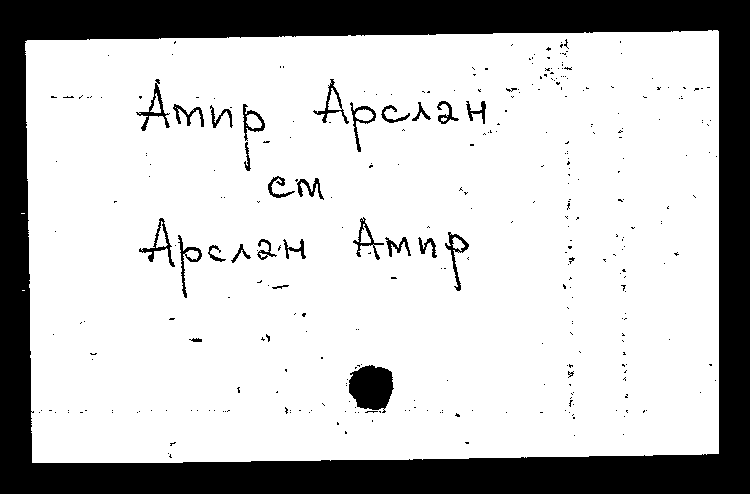 Амир Арслан
см
Арслан Амир